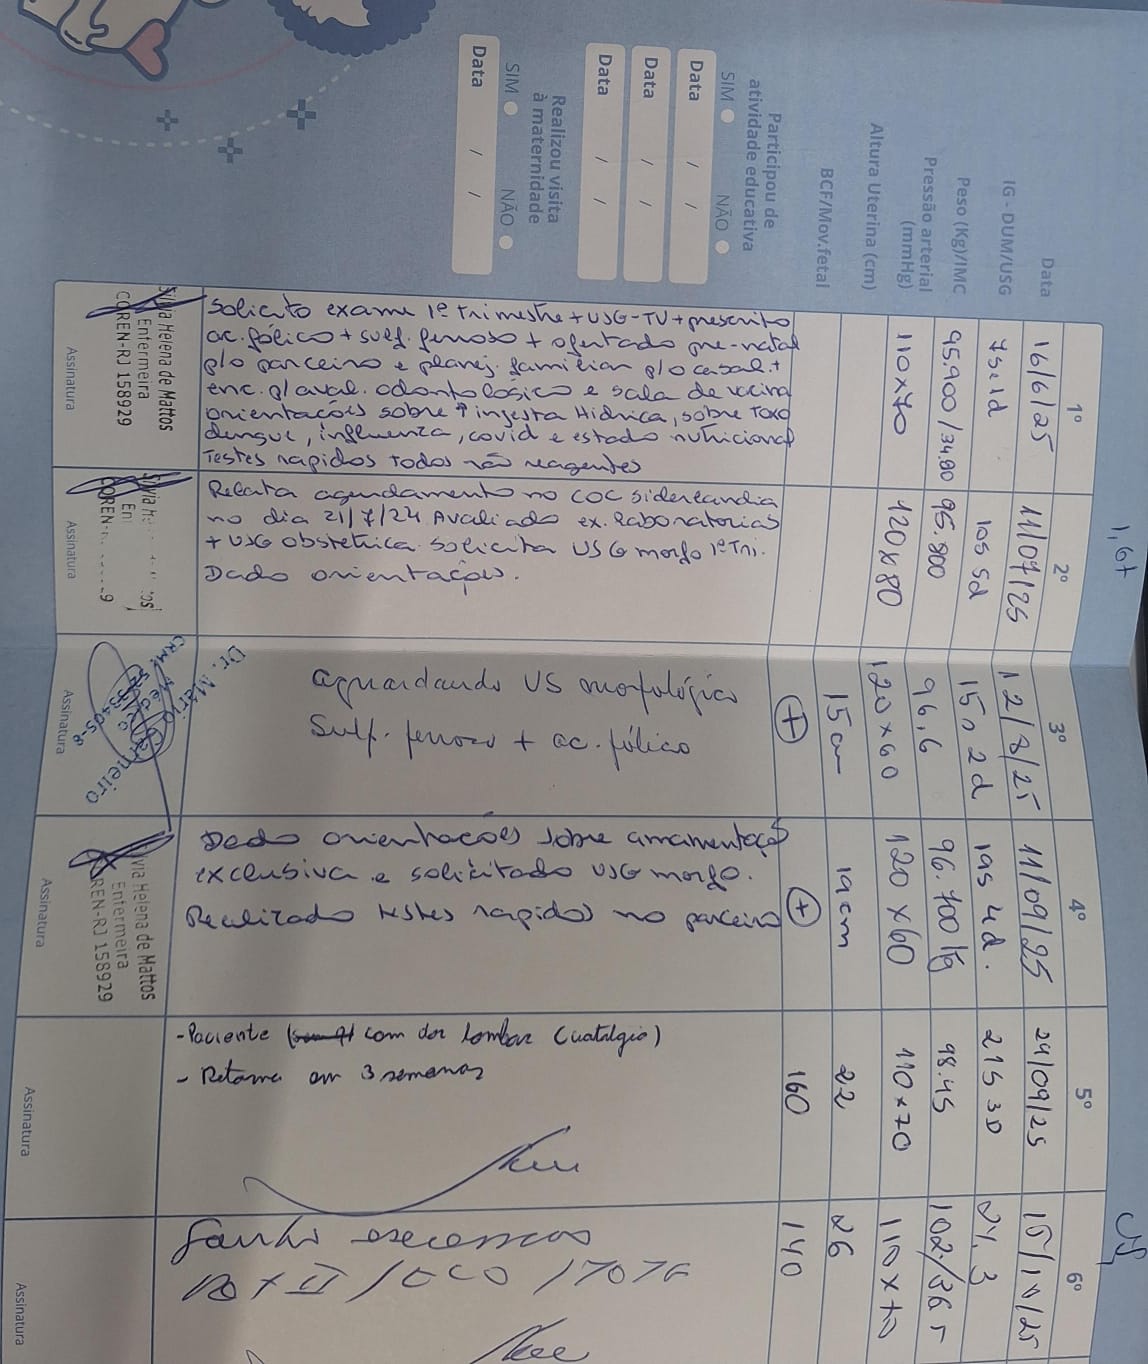 1,67
US
1º
2º
3º
4º
5º
6º
Data
16/6/25
11/07/25
12/8/25
11/09/25
24/09/25
15/10/25
IG - DUM/USG
7s e 1d
10s 5d
15s 2d
19s 4d.
21S 3D
24. 3
Peso (Kg)/IMC
95.900 /34.80
95.800
96,6
96.700 kg
98.45
102./36 5
Pressão arterial
(mmHg)
110x70
120x80
120x60
120x60
110x70
110x70
Altura Uterina (cm)
15 cm
19cm
22
26
BCF/Mov.fetal
+
+
160
140
Participou de
atividade educativa
SIM NÃO
Data / /
Data / /
Data / /
Realizou visita
à maternidade
SIM NÃO
Data / /
Solicito exame 1º Trimestre + USG-TV + prescrito
ac. fólico + sulf. ferroso + ofertado pre-natal
p/o parceiro e planej. familiar p/o casal. +
enc. p/ aval. odontológico e sala de vacina
orientações sobre ↑ ingesta Hídrica, sobre Toxo
dengue, influenza, covid e estado nutricional
Testes rapidos todos não reagentes
Silvia Helena de Mattos
Enfermeira
COREN-RJ 158929
Assinatura
Relata agendamento no COC Siderlandia
no dia 21/7/24 Avaliado ex. laboratoriais
+ USG obstetrica. Solicita USG morfo 1º Tri.
Dado orientações.
Assinatura
aguardando US morfológico
Sulf. ferroso + ac. fólico
Dr. Mário Carneiro
Médico
Assinatura
Dado orientações sobre amamentação
exclusiva e solicitado USG morfo.
Realizado testes rapidos no parceiro
Silvia Helena de Mattos
Enfermeira
COREN-RJ 158929
Assinatura
- Paciente com dor lombar (ciatalgia)
- Retorno em 3 semanas
Assinatura
Ganho excessivo
Assinatura